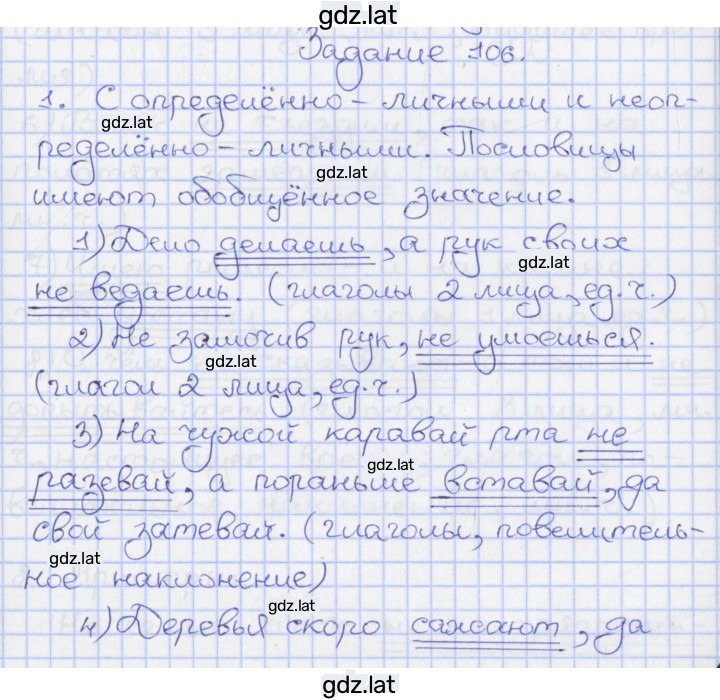 gdz.lat
Задание 106.
1. С определённо-личными и неоп-
gdz.lat
ределённо-личными. Пословицы
gdz.lat
имеют обобщённое значение.
1) Дело делаешь, а рук своих
gdz.lat
не ведаешь. (глаголы 2 лица, ед.ч.)
gdz.lat
2) Не замочив рук, не умоешься.
gdz.lat
(глагол 2 лица, ед.ч.)
3) На чужой каравай рта не
gdz.lat
разевай, а пораньше вставай, да
свой затевай. (глаголы, повелитель-
gdz.lat
ное наклонение)
gdz.lat
4) Деревья скоро сажают, да
gdz.lat